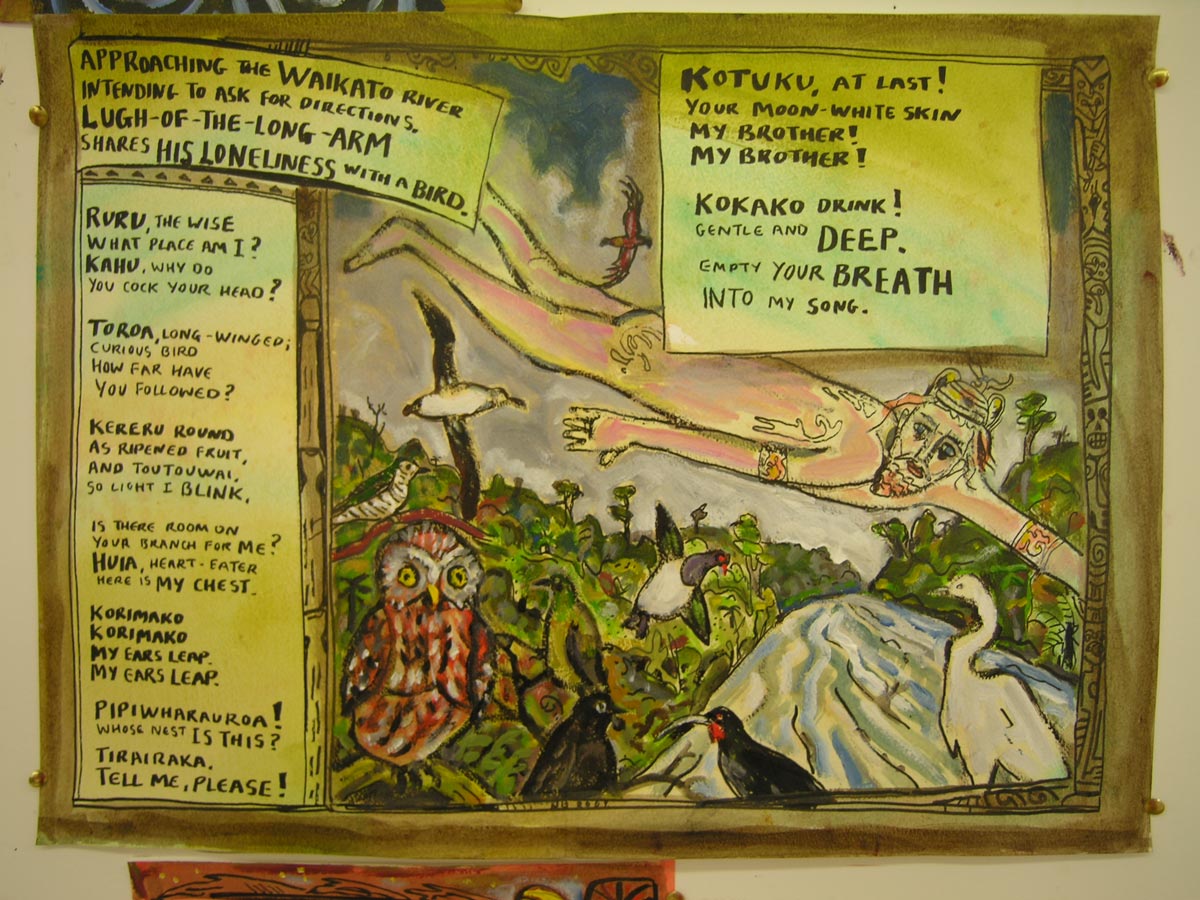 APPROACHING THE WAIKATO RIVER
INTENDING TO ASK FOR DIRECTIONS,
LUGH-OF-THE-LONG-ARM
SHARES HIS LONELINESS WITH A BIRD.
RURU, THE WISE
WHAT PLACE AM I?
KAHU, WHY DO
YOU COCK YOUR HEAD?
TOROA, LONG-WINGED;
CURIOUS BIRD
HOW FAR HAVE
YOU FOLLOWED?
KERERU ROUND
AS RIPENED FRUIT,
AND TOUTOUWAI,
SO LIGHT I BLINK,
IS THERE ROOM ON
YOUR BRANCH FOR ME?
HUIA, HEART-EATER
HERE IS MY CHEST.
KORIMAKO
KORIMAKO
MY EARS LEAP.
MY EARS LEAP.
PIPIWHARAUROA!
WHOSE NEST IS THIS?
TIRAIRAKA,
TELL ME, PLEASE!
KOTUKU, AT LAST!
YOUR MOON-WHITE SKIN
MY BROTHER!
MY BROTHER!
KOKAKO DRINK!
GENTLE AND DEEP.
EMPTY YOUR BREATH
INTO MY SONG.